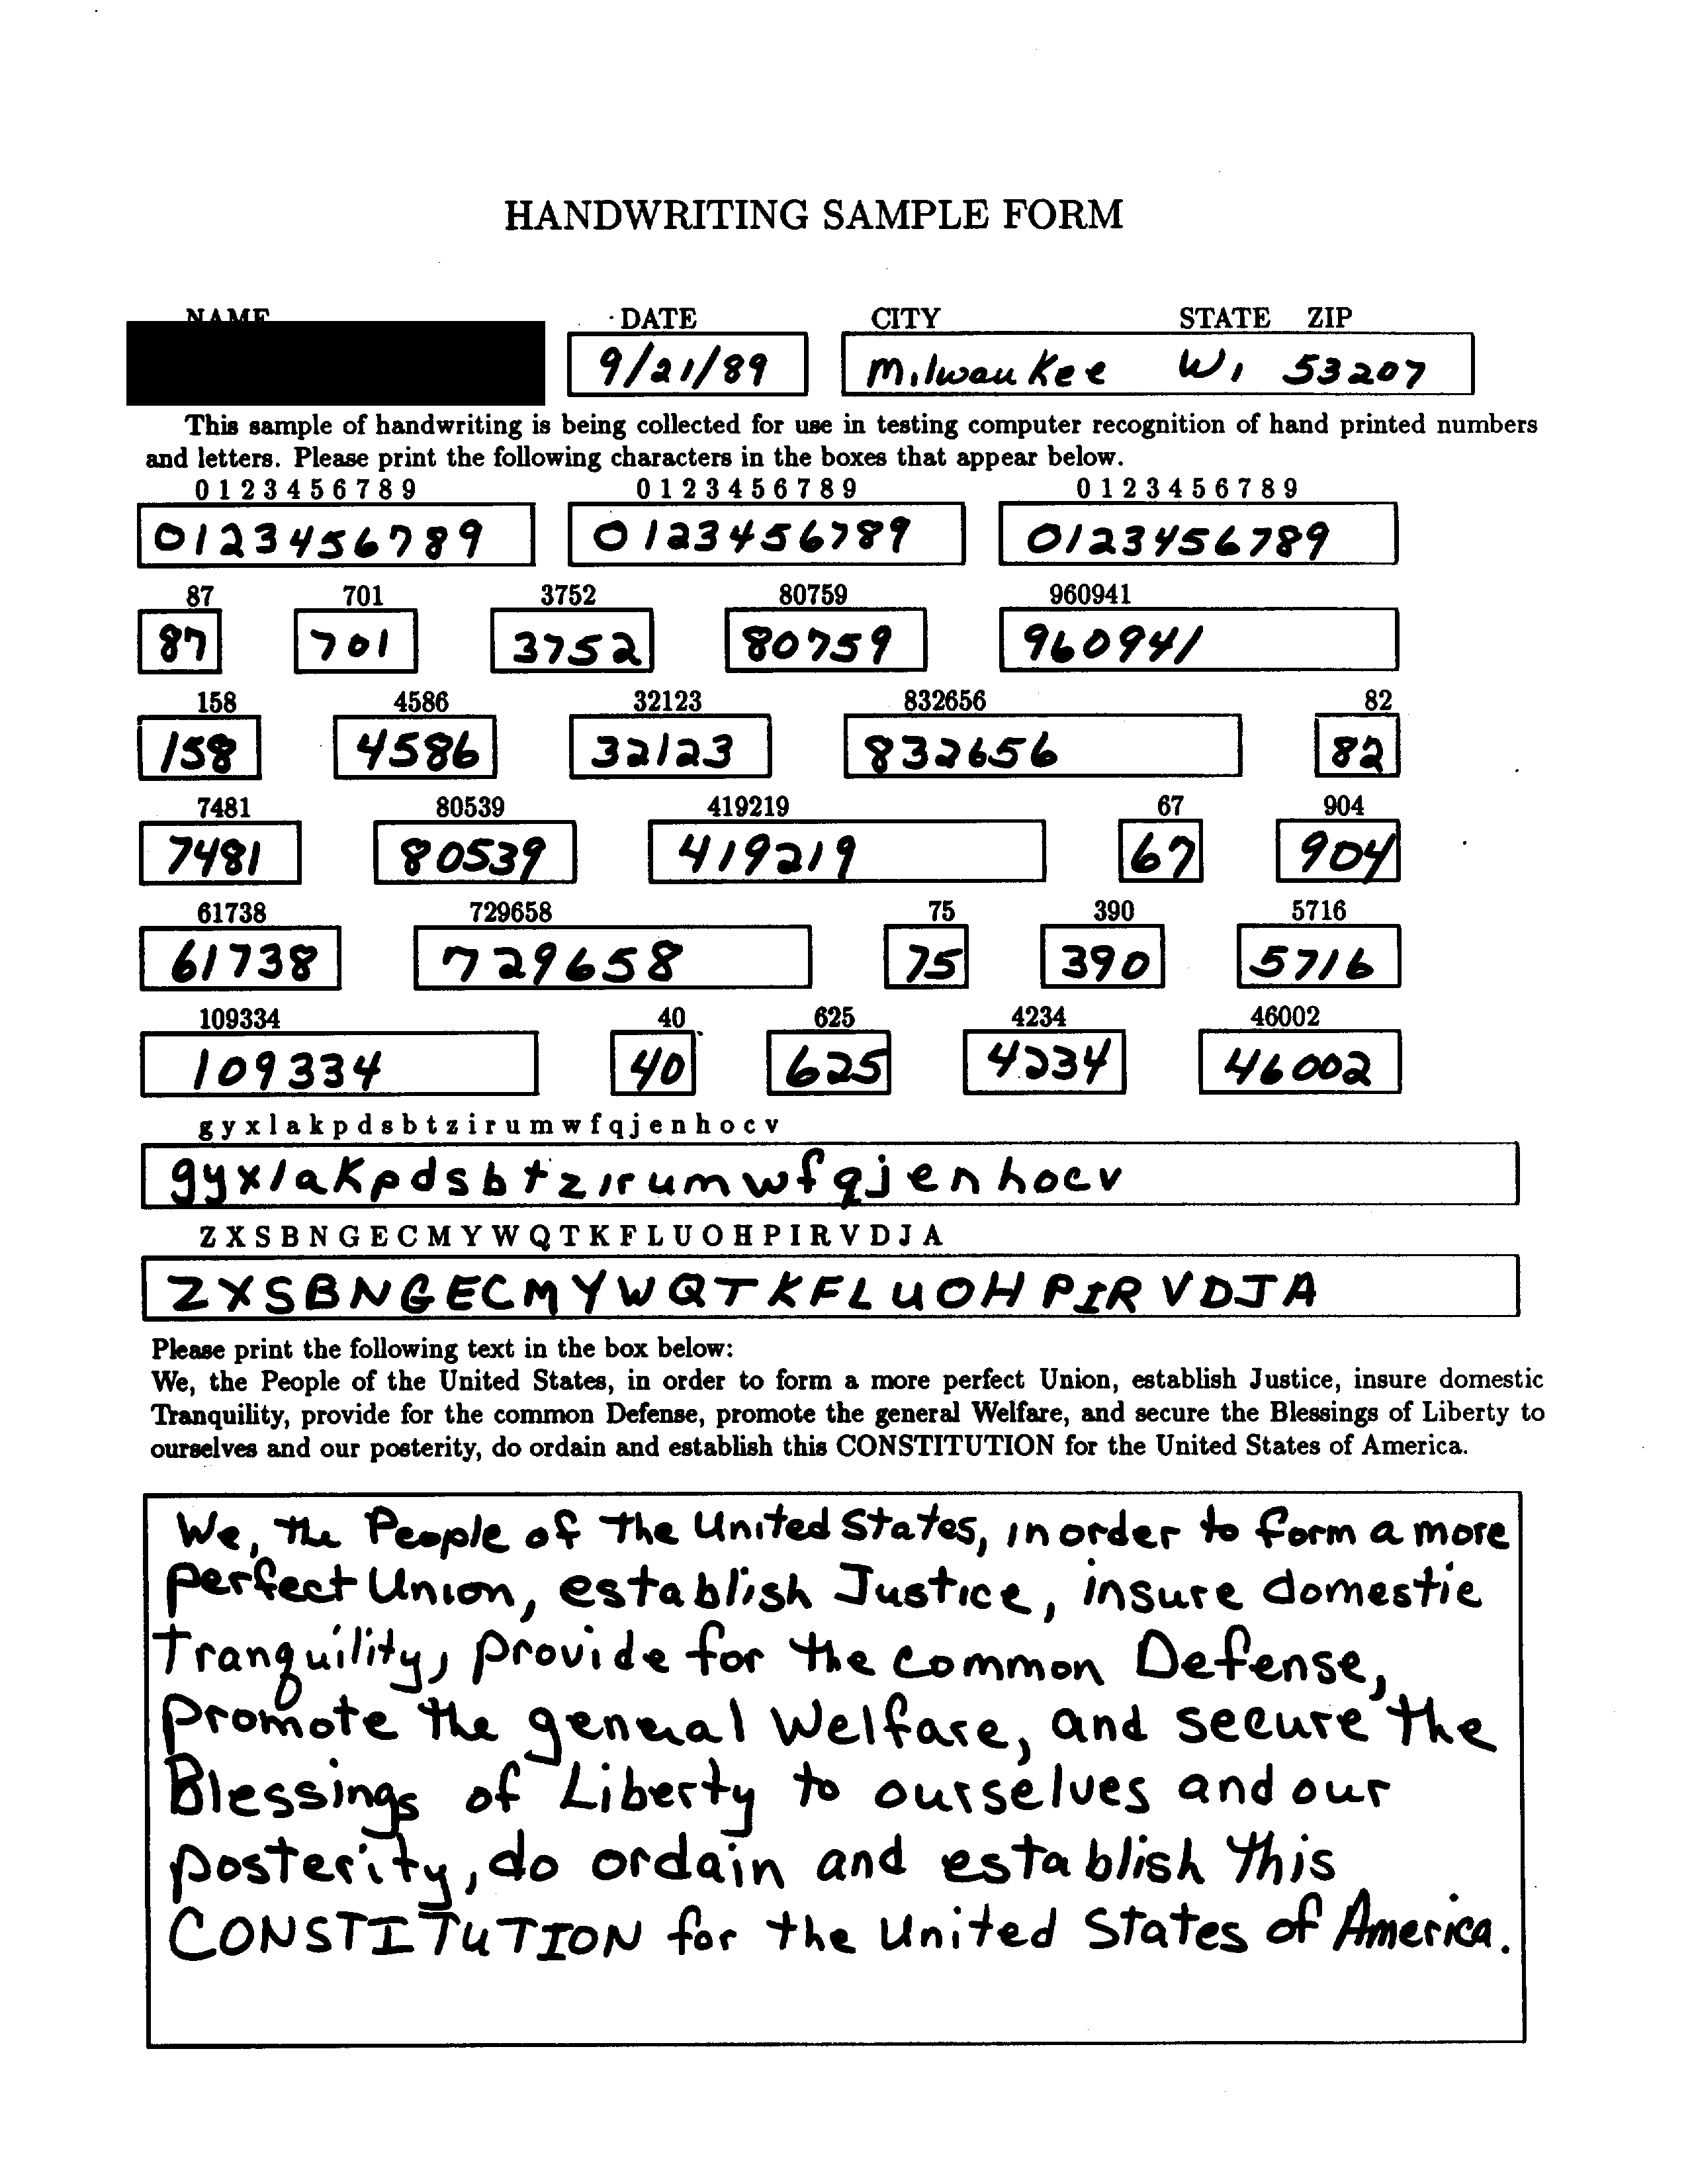 HANDWRITING SAMPLE FORM
NAME DATE CITY STATE ZIP
9/21/89 Milwaukee WI 53207
This sample of handwriting is being collected for use in testing computer recognition of hand printed numbers
and letters. Please print the following characters in the boxes that appear below.
0 1 2 3 4 5 6 7 8 9 0 1 2 3 4 5 6 7 8 9 0 1 2 3 4 5 6 7 8 9
0123456789 0123456789 0123456789
87 701 3752 80759 960941
87 701 3752 80759 960941
158 4586 32123 832656 82
158 4586 32123 832656 82
7481 80539 419219 67 904
7481 80539 419219 67 904
61738 729658 75 390 5716
61738 729658 75 390 5716
109334 40 625 4234 46002
109334 40 625 4234 46002
g y x l a k p d s b t z i r u m w f q j e n h o c v
gyxlakpdsbtzirumwfqjenhocv
Z X S B N G E C M Y W Q T K F L U O H P I R V D J A
ZXSBNGECMYWQTKFLUOHPIRVDJA
Please print the following text in the box below:
We, the People of the United States, in order to form a more perfect Union, establish Justice, insure domestic
Tranquility, provide for the common Defense, promote the general Welfare, and secure the Blessings of Liberty to
ourselves and our posterity, do ordain and establish this CONSTITUTION for the United States of America.
We, the People of the United States, in order to form a more
perfect Union, establish Justice, insure domestic
Tranquility, provide for the common Defense,
promote the general Welfare, and secure the
Blessings of Liberty to ourselves and our
posterity, do ordain and establish this
CONSTITUTION for the United States of America.